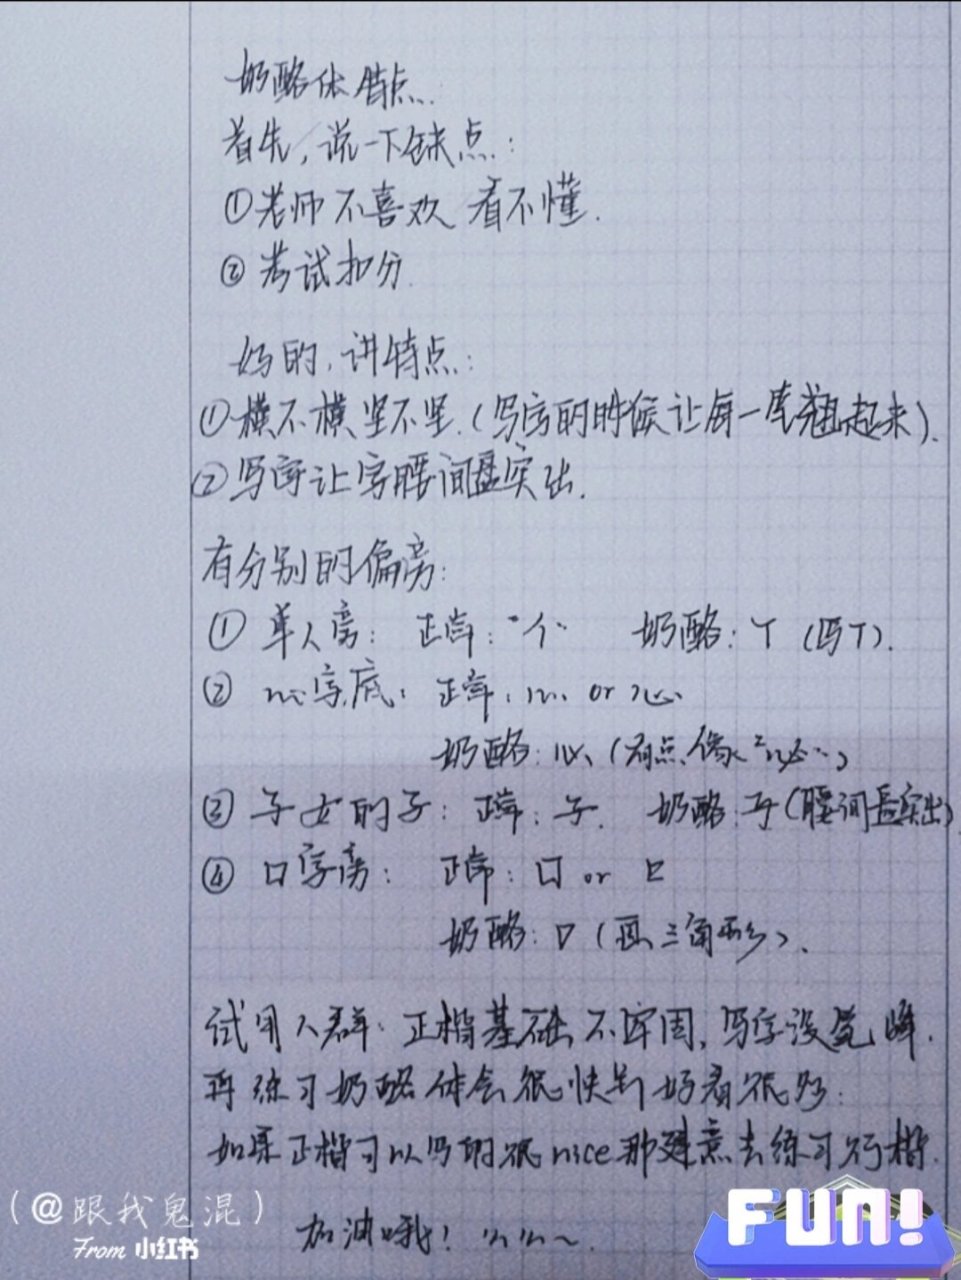 奶酪体特点:
首先,说一下缺点:
①老师不喜欢 看不懂.
②考试扣分.
好的,讲特点:
①横不横 竖不竖.(写字的时候让每一笔翘起来).
②写字让字腰间盘突出.
有分别的偏旁:
① 单人旁: 正常:"亻" 奶酪: (写T).
② 心字底: 正常: 心 or 心.
奶酪: 心 (有点像"心")
③ 子女的子: 正常: 子. 奶酪: 子(腰间盘突出)
④ 口字旁: 正常: 口 or 口
奶酪: (画三角形).
试用人群: 正楷基础不牢固, 写字没笔峰.
再练习奶酪体会很快 好看很多:
如果正楷可以写的很nice那建议去练习行楷.
加油哦!
(@跟我鬼混)
From 小红书
FUN!